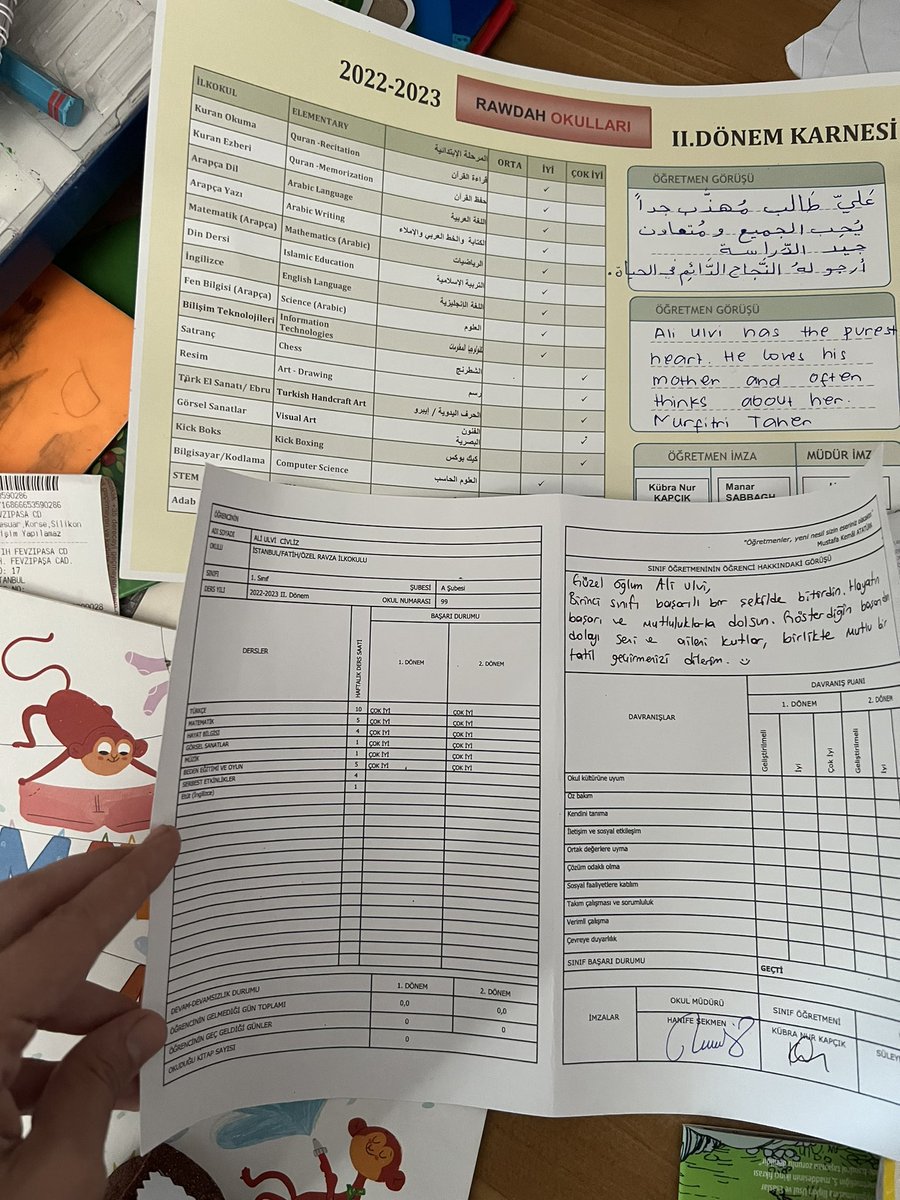 2022-2023
RAWDAH OKULLARI
II.DÖNEM KARNESİ
İLKOKUL ELEMENTARY المرحلة الإبتدائية ORTA İYİ ÇOK İYİ
Kuran Okuma Quran -Recitation قراءة القرآن ✓
Kuran Ezberi Quran -Memorization حفظ القرآن ✓
Arapça Dil Arabic Language اللغة العربية ✓
Arapça Yazı Arabic Writing الكتابة والخط العربي والإملاء ✓
Matematik (Arapça) Mathematics (Arabic) الرياضيات ✓
Din Dersi Islamic Education التربية الإسلامية ✓
İngilizce English Language اللغة الإنجليزية ✓
Fen Bilgisi (Arapça) Science (Arabic) العلوم ✓
Bilişim Teknolojileri Information Technologies ✓
Satranç Chess الشطرنج ✓
Resim Art - Drawing رسم ✓
Türk El Sanatı/ Ebru Turkish Handcraft Art الحرف اليدوية / إيبرو ✓
Görsel Sanatlar Visual Art الفنون البصرية ✓
Kick Boks Kick Boxing كيك بوكس ✓
Bilgisayar/Kodlama Computer Science العلوم الحاسب ✓
STEM
Adab
ÖĞRETMEN GÖRÜŞÜ
عَليّ طَالب مُهذَّب جداً
يُحب الجميع و مُتعاون
جيد الدِّراسة
أرجو لهُ النَّجاح الدَّائِم في الحياة.
ÖĞRETMEN GÖRÜŞÜ
Ali ulvi has the purest
heart. He loves his
mother and often
thinks about her.
Nurfitri Taher
ÖĞRETMEN İMZA MÜDÜR İMZ
Kübra Nur Manar
KAPÇIK SABBAGH
3590286
71686653590286
VZIPASA CD
esuar,Korse,Silikon
işim Yapılamaz
IH FEVZIPAŞA CD
H. FEVZIPAŞA CAD.
: 17
TANBUL
ÖĞRENCİNİN
ADI SOYADI ALİ ULVİ CİVLİZ
OKULU İSTANBUL/FATİH/ÖZEL RAVZA İLKOKULU
SINIFI 1. Sınıf ŞUBESİ A Şubesi
DERS YILI 2022-2023 II. Dönem OKUL NUMARASI 99
DERSLER HAFTALIK DERS SAATİ BAŞARI DURUMU
1. DÖNEM 2. DÖNEM
TÜRKÇE 10 ÇOK İYİ ÇOK İYİ
MATEMATİK 5 ÇOK İYİ ÇOK İYİ
HAYAT BİLGİSİ 4 ÇOK İYİ ÇOK İYİ
GÖRSEL SANATLAR 1 ÇOK İYİ ÇOK İYİ
MÜZİK 1 ÇOK İYİ ÇOK İYİ
BEDEN EĞİTİMİ VE OYUN 5 ÇOK İYİ ÇOK İYİ
SERBEST ETKİNLİKLER 4
Etüt (İngilizce) 1
1. DÖNEM 2. DÖNEM
DEVAM-DEVAMSIZLIK DURUMU
ÖĞRENCİNİN GELMEDİĞİ GÜN TOPLAMI 0,0 0,0
ÖĞRENCİNİN GEÇ GELDİĞİ GÜNLER 0 0
OKUDUĞU KİTAP SAYISI 0
"Öğretmenler, yeni nesil sizin eseriniz olacaktır."
Mustafa Kemal ATATÜRK
SINIF ÖĞRETMENİNİN ÖĞRENCİ HAKKINDAKİ GÖRÜŞÜ
Güzel Oğlum Ali ulvi,
Birinci sınıfı başarılı bir şekilde bitirdin. Hayatın
başarı ve mutluluklarla dolsun. Gösterdiğin başarıdan
dolayı seni ve aileni kutlar, birlikte mutlu bir
tatil geçirmenizi dilerim.
DAVRANIŞLAR DAVRANIŞ PUANI
1. DÖNEM 2. DÖNEM
Geliştirilmeli İyi Çok İyi Geliştirilmeli İyi
Okul kültürüne uyum
Öz bakım
Kendini tanıma
İletişim ve sosyal etkileşim
Ortak değerlere uyma
Çözüm odaklı olma
Sosyal faaliyetlere katılım
Takım çalışması ve sorumluluk
Verimli çalışma
Çevreye duyarlılık
SINIF BAŞARI DURUMU GEÇTİ
İMZALAR OKUL MÜDÜRÜ SINIF ÖĞRETMENİ
HANİFE SEKMEN KÜBRA NUR KAPÇIK SÜLEY